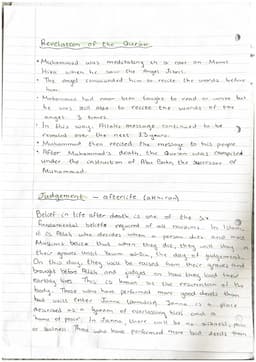 Revelation of the Quran
• Muhammad was meditating in a cave on Mount
Hira when he saw the Angel Jibril.
• The angel commanded him to recite the words before
him.
• Muhammad had never been taught to read or write but
he was still able to recite the words of the
angel 3 times.
• In this way, Allah's message continued to be
revealed over the next years.
• Muhammad then recited the message to his people.
• After Muhammad's death, the Quran was compiled
under the instruction of Abu Bakr, the successor of
Muhammad.
Judgement - afterlife (akhirah)
Belief in life after death is one of the six
fundamental beliefs required of all muslims. In Islam,
it is Allah who decides when a person dies and most
Muslims believe that when they die, they will stay in
their graves until Yawm al-din, the day of judgement.
On this day, they will be raised from their graves and
brought before Allah and judged on how they lived their
earthly lives. This is known as the resurrection of the
body. Those who have performed more good deeds than
bad will enter Janna (paradise). Janna is a place
described as a of everlasting bliss and a
home of peace. In Janna, there will be no sickness, pain
or sadness. Those who have performed more bad deeds than